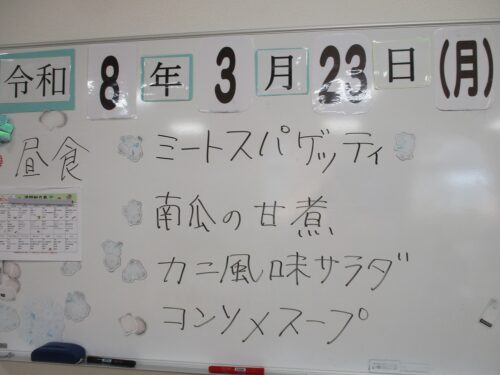 令和8年3月23日(月)
昼食
ミートスパゲッティ
南瓜の甘煮
カニ風味サラダ
コンソメスープ